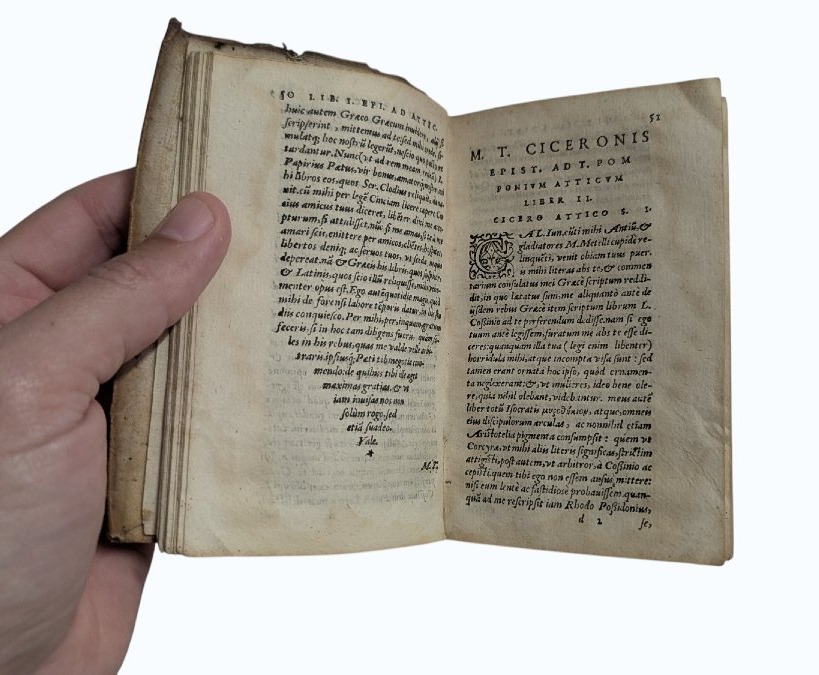 50 LIB. I. EPI. AD ATTIC.
huic autem Græco Græcum
scripserint, mittemus ad te, sed
mulatq; hoc nostrũ legerũt, nescio quo
tardantur. Nunc (vt ad rem meam
Papirius Pætus, vir bonus, amatorq; noster
hi libros eos, quos Ser. Clodius reliquit,
uit. cũ mihi per legẽ Cinciam licere
eius amicus tuus diceret, libẽter
pturum, si attulisset, nũc si me amas, si te à me
amari scis, enittere per amicos, clientes, hospites,
libertos deniq; ac seruos tuos, vt
depereat. nã & Græcis his libris, quos
& Latinis, quos scio illũ reliquisse,
menter opus est. Ego autẽ quotidie magis, quod
mihi de forensi labore tẽporis datur, in
diis conquiesco. Per mihi, per, inquam,
feceris, si in hoc tam diligens
les in his rebus, quas me valde velle
traris. ipsiusq; Pæti tibi negotia
mendo: de quibus tibi ille agit
maximas gratias. & vt
iam inuisas nos non
solùm rogo, sed
etiã suadeo.
Vale.
M. T.
51
M. T. CICERONIS
EPIST. AD T. POM
PONIVM ATTICVM
LIBER II.
CICERO ATTICO S. I.
CAL. Iun. eũti mihi Antiũ, &
gladiatores M. Metelli cupidè re-
linquẽti, venit obuiam tuus puer.
is mihi literas abs te, & commen
tarium consulatus mei Græcè scriptum reddi-
dit, in quo lætatus sum, me aliquantò antè de
iisdem rebus Græcè item scriptum librum L.
Cossinio ad te perferendum dedisse. nam si ego
tuum antè legissem, furatum me abs te esse di
ceres: quanquam illa tua (legi enim libenter)
horridula mihi, atque incompta visa sunt: sed
tamen erant ornata hoc ipso, quòd ornamen-
ta neglexerant: &, vt mulieres, ideo bene ole-
re, quia nihil olebant, videbantur. meus autẽ
liber totũ Isocratis μυροθήκιον, atque, omneis
eius discipulorum arculas, ac nonnihil etiam
Aristotelia pigmenta consumpsit: quem vt
Corcyræ, vt mihi aliis literis significas, strictim
attigisti, post autem, vt arbitror, à Cossinio ac
cepisti. quem tibi ego non essem ausus mittere:
nisi eum lentè ac fastidiose probauissem. quan-
quã ad me rescripsit iam Rhodo Posidonius,
d 2 se,